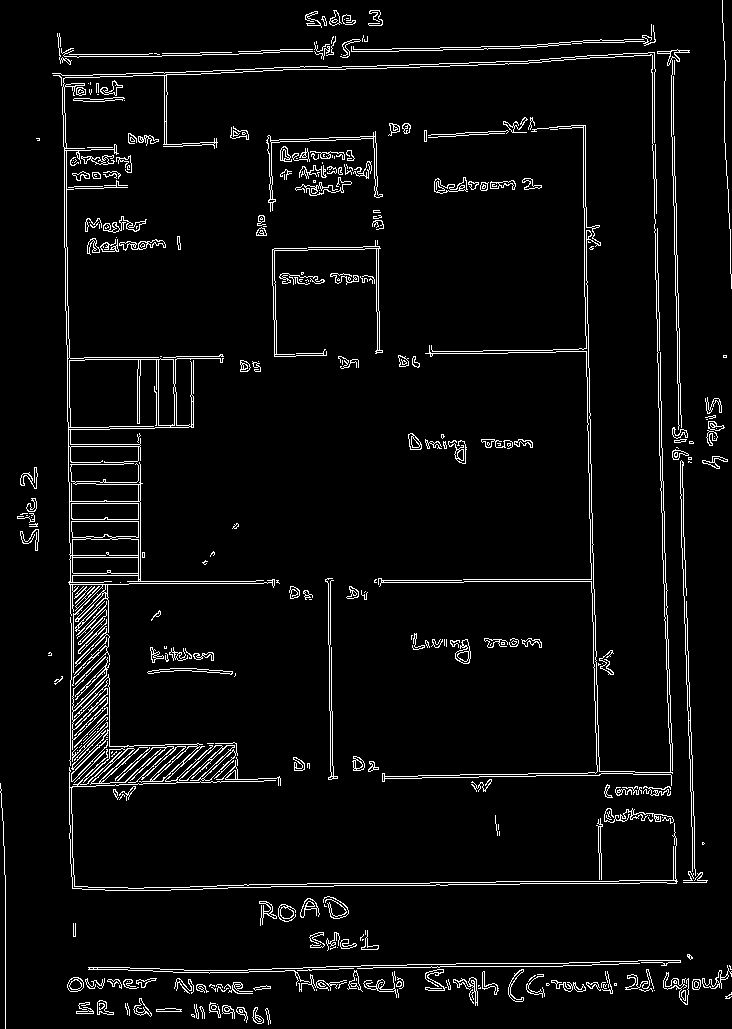 Side 3
Toilet
D12
D9
D8
W1
dressing
room
Bedrooms
+ Attached
toilet
Bedroom 2
Master
Bedroom 1
D10
D11
W
Store room
D5
D7
D6
Dining room
Side 2
Side 4
51'6"
D3
D4
Kitchen
Living room
W
D1
D2
W
W
Common
Bathroom
ROAD
Side 1
Owner Name - Hardeep Singh (Ground 2d layout)
SR id - 1199961